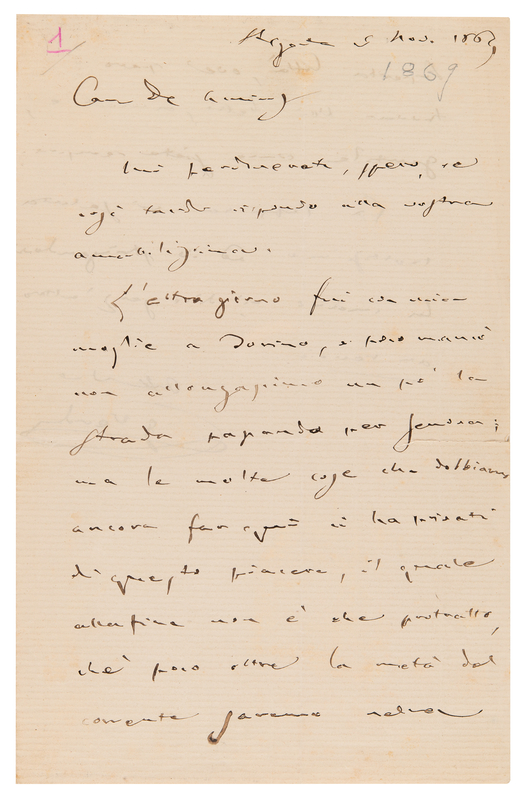 1
5 Nov. 1869
1869
Caro De Amicis
Mi perdonerete, spero, se
così tardi rispondo alla vostra
amabilissima.
L'altro giorno fui con mia
moglie a Torino, e poco mancò
non allungassimo un po' la
strada passando per Genova;
ma le molte cose che dobbiamo
ancora far qui ci ha privati
di questo piacere, il quale
alla fine non è che protratto,
chè poco oltre la metà del
corrente saremo